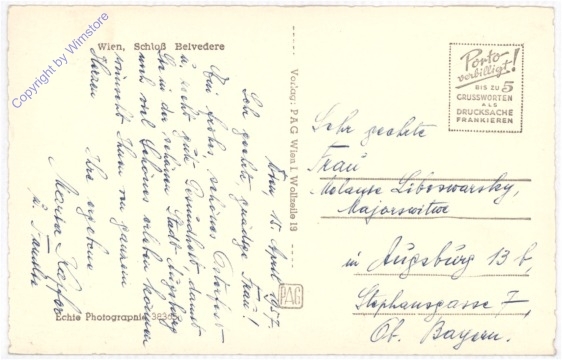 Wien, Schloß Belvedere
Wien, 15. April 1957
Sehr geehrte gnädige Frau!
Ein frohes, schönes Osterfest
u. recht gute Gesundheit, damit
Sie in der schönen Stadt Augsburg
noch viel Schönes erleben können
wünscht Ihnen von ganzem
Herzen
Ihre ergebene
Maria
u. Familie
Echte Photographie
Verlag: PAG Wien I Wollzeile 13
PAG
Porto
verbilligt!
BIS ZU 5
GRUSSWORTEN
ALS
DRUCKSACHE
FRANKIEREN
Sehr geehrte
Frau
Melanie Liboswarsky,
Majorswitwe
in Augsburg 13 b,
Stephansgasse 7,
Ob. Bayern.
Copyright by Wimstore